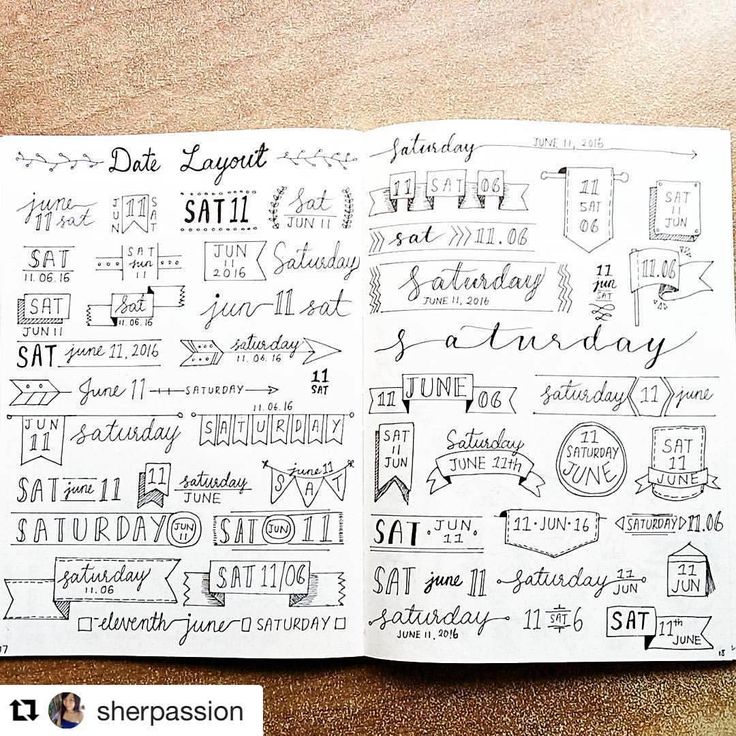 Date Layout
june
11 sat
JUN
11
SAT
SAT 11
Sat
JUN 11
SAT
11.06.16
SAT
jun
11
JUN
11
2016
Saturday
SAT
JUN 11
Sat
11.06.16
jun 11 sat
SAT june 11, 2016
saturday
11.06.16
June 11
SATURDAY
11
SAT
JUN
11
saturday
11.06.16
SATURDAY
SAT june 11
11
saturday
JUNE
june 11
SAT
SATURDAY JUN 11
SAT JUN 11
saturday
11.06
SAT 11/06
eleventh june SATURDAY
17
saturday JUNE 11, 2016
11 SAT 06
11
SAT
06
SAT
11
JUN
sat 11.06
saturday
JUNE 11, 2016
11
jun
SAT
11.06
saturday
11 JUNE 06
saturday 11 june
SAT
11
JUN
Saturday
JUNE 11th
11
SATURDAY
JUNE
SAT
11
JUNE
SAT · JUN ·
11
11·JUN·16
SATURDAY 11.06
SAT june 11
saturday 11
JUN
11
JUN
saturday
JUNE 11, 2016
11 SAT 6
SAT
11th
JUNE
18
sherpassion